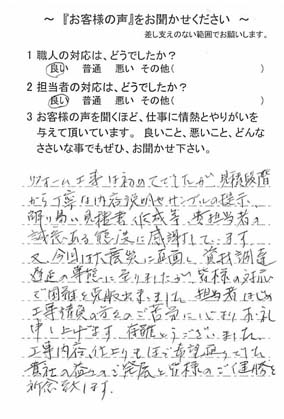 ～ 『お客様の声』をお聞かせください ～
差し支えのない範囲でお願いします。
1 職人の対応は、どうでしたか？
良い 普通 悪い その他( )
2 担当者の対応は、どうでしたか？
良い 普通 悪い その他( )
3 お客様の声を聞くほど、仕事に情熱とやりがいを
与えて頂いています。 良いこと、悪いこと、どんな
ささいな事でもぜひ、お聞かせ下さい。
リフォーム工事は初めてでしたが、見積段階
から丁寧な内容説明やサンプルの提示、
明り易い見積書作成等、貴担当者の
誠意ある態度に感謝しています
又、今回は大震災に直面し資材調達
遅延の事態に至りましたが皆様の対応
で困難を克服出来ました 担当者はじめ
工事職員の方々のご苦労に心よりお礼
申し上げます 有難とうございました
工事内容、仕上りもほぼ希望通りでした
貴社の益々のご発展と皆様のご健勝を
祈念致します。